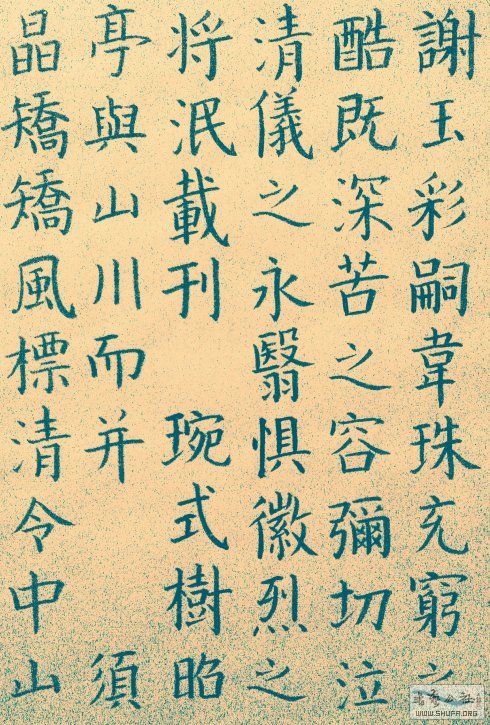 謝玉彩嗣韋珠充窮之
酷既深苦之容彌切泣
清儀之永翳懼徽烈之
将泯載刊 琬式樹昭
亭與山川而并 須
晶矯矯風標清令中山
WWW.SHUFA.ORG